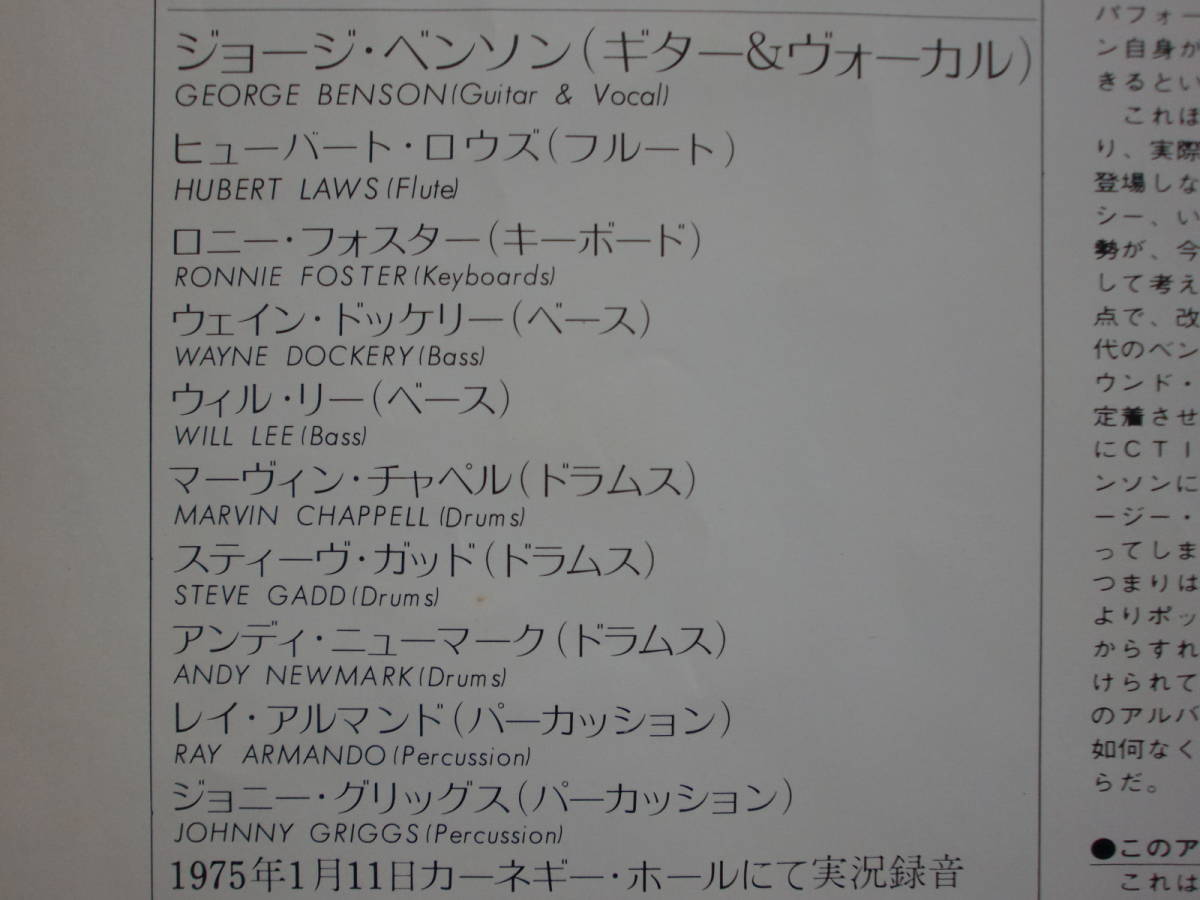 ジョージ・ベンソン(ギター&ヴォーカル)
GEORGE BENSON(Guitar & Vocal)
ヒューバート・ロウズ(フルート)
HUBERT LAWS(Flute)
ロニー・フォスター(キーボード)
RONNIE FOSTER(Keyboards)
ウェイン・ドッケリー(ベース)
WAYNE DOCKERY(Bass)
ウィル・リー(ベース)
WILL LEE(Bass)
マーヴィン・チャペル(ドラムス)
MARVIN CHAPPELL(Drums)
スティーヴ・ガッド(ドラムス)
STEVE GADD(Drums)
アンディ・ニューマーク(ドラムス)
ANDY NEWMARK(Drums)
レイ・アルマンド(パーカッション)
RAY ARMANDO(Percussion)
ジョニー・グリッグス(パーカッション)
JOHNNY GRIGGS(Percussion)
1975年1月11日カーネギー・ホールにて実況録音
パフォー
ン自身が
きるとい
これほ
り、実際
登場しな
シー、い
勢が、今
して考え
点で、改
代のベン
ウンド・
定着させ
にCTI
ンソンに
ージー・
ってしま
つまりは
よりポッ
からすれ
けられて
のアルバ
如何なく
らだ。
●このア
これは